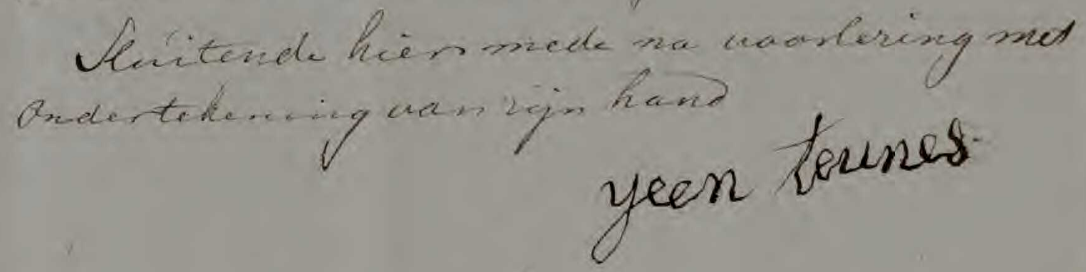 Sluitende hier mede na voorlezing met
ondertekening van zijn hand
yeen teunes